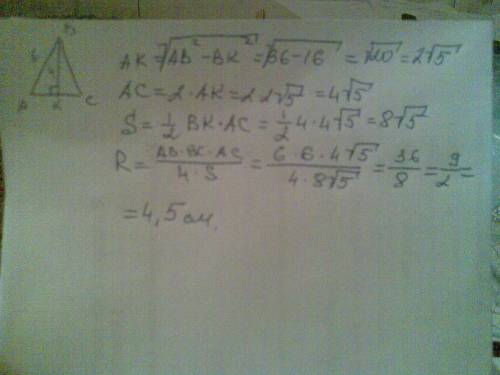 B
6
4
A
K
C
AK = √AB² - BK² = √36 - 16 = √20 = 2√5
AC = 2 · AK = 2 · 2√5 = 4√5
S = 1/2 BK · AC = 1/2 4 · 4√5 = 8√5
R = AB · BC · AC / 4 · S = 6 · 6 · 4√5 / 4 · 8√5 = 36/8 = 9/2 =
= 4,5 см.